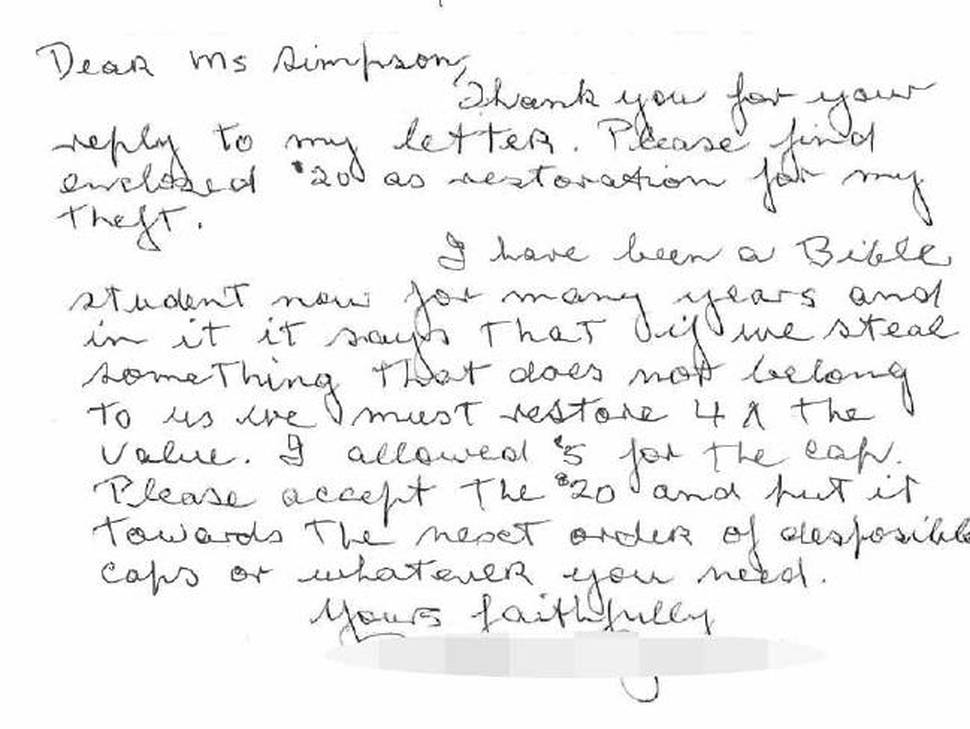 Dear Ms Simpson,
Thank you for your
reply to my letter. Please find
enclosed $20 as restoration for my
theft.
I have been a Bible
student now for many years and
in it it says that if we steal
something that does not belong
to us we must restore 4 x the
value. I allowed $5 for the cap.
Please accept the $20 and put it
towards the next order of desposible
caps or whatever you need.
Yours faithfully